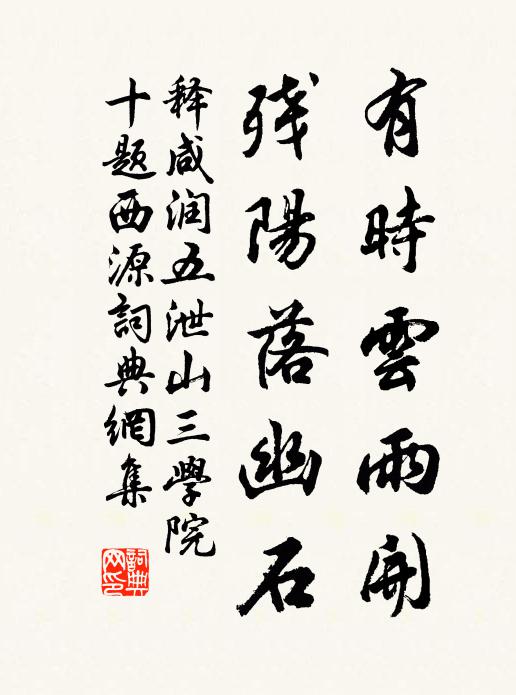 有時雲雨開
残陽落幽石
释咸润五泄山三學院
十题西源詞典網集
詞典網印